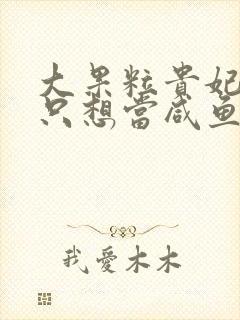 大果粒貴妃
只想當咸魚
我愛木木